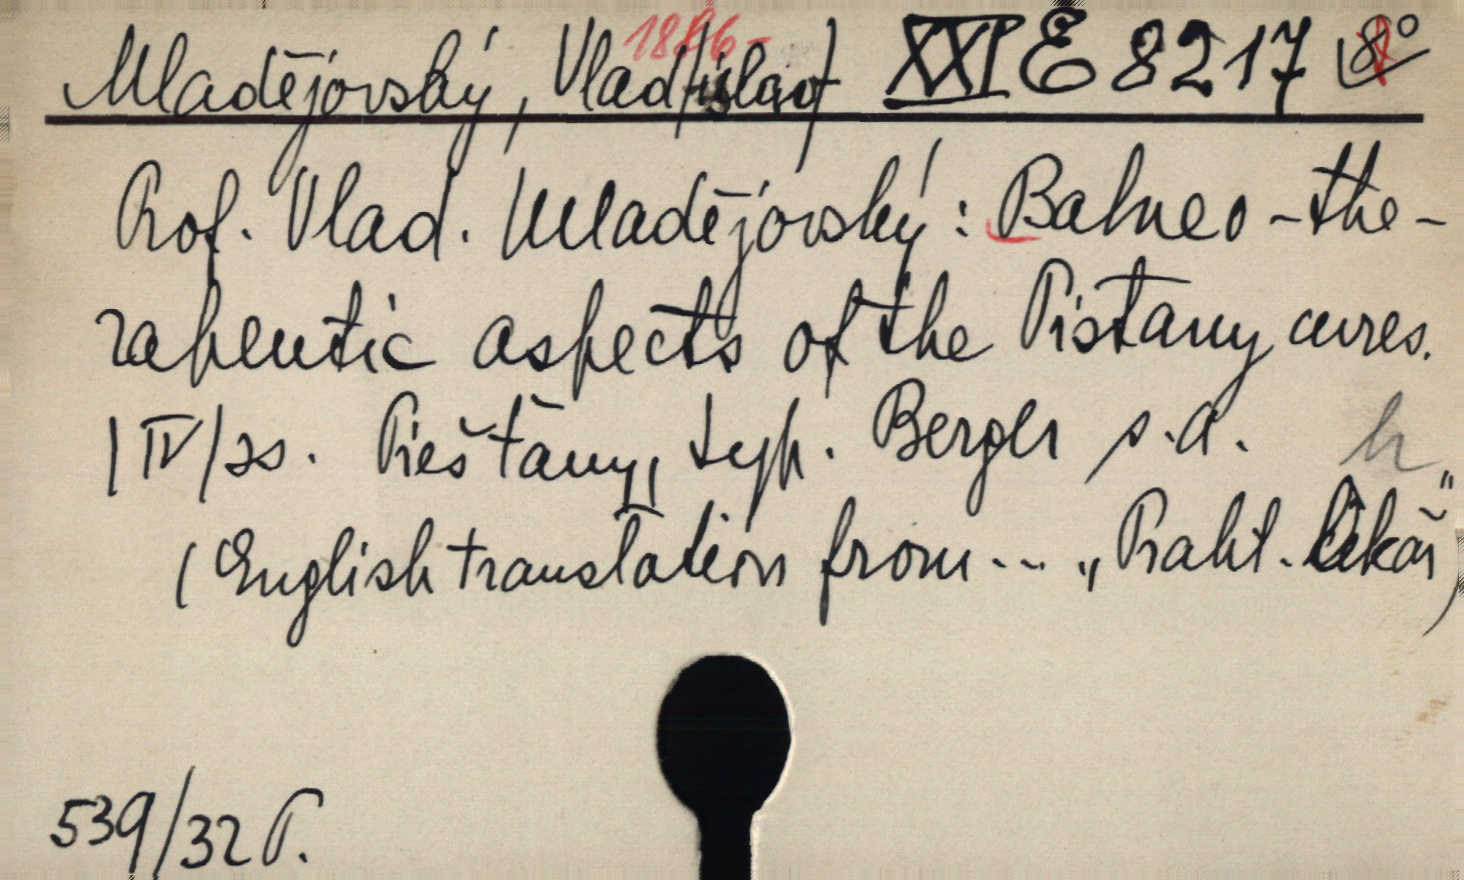 1886-
Mladějovský, Vlad/islav/ XXI E 8217
Prof. Vlad. Mladějovský: Balneo-the-
rapeutic aspects of the Pistany cures.
/IV/ss. Piešťany, typ. Berger s.a.
h
(English translation from... „Prakt. lékař")
539/32 P.